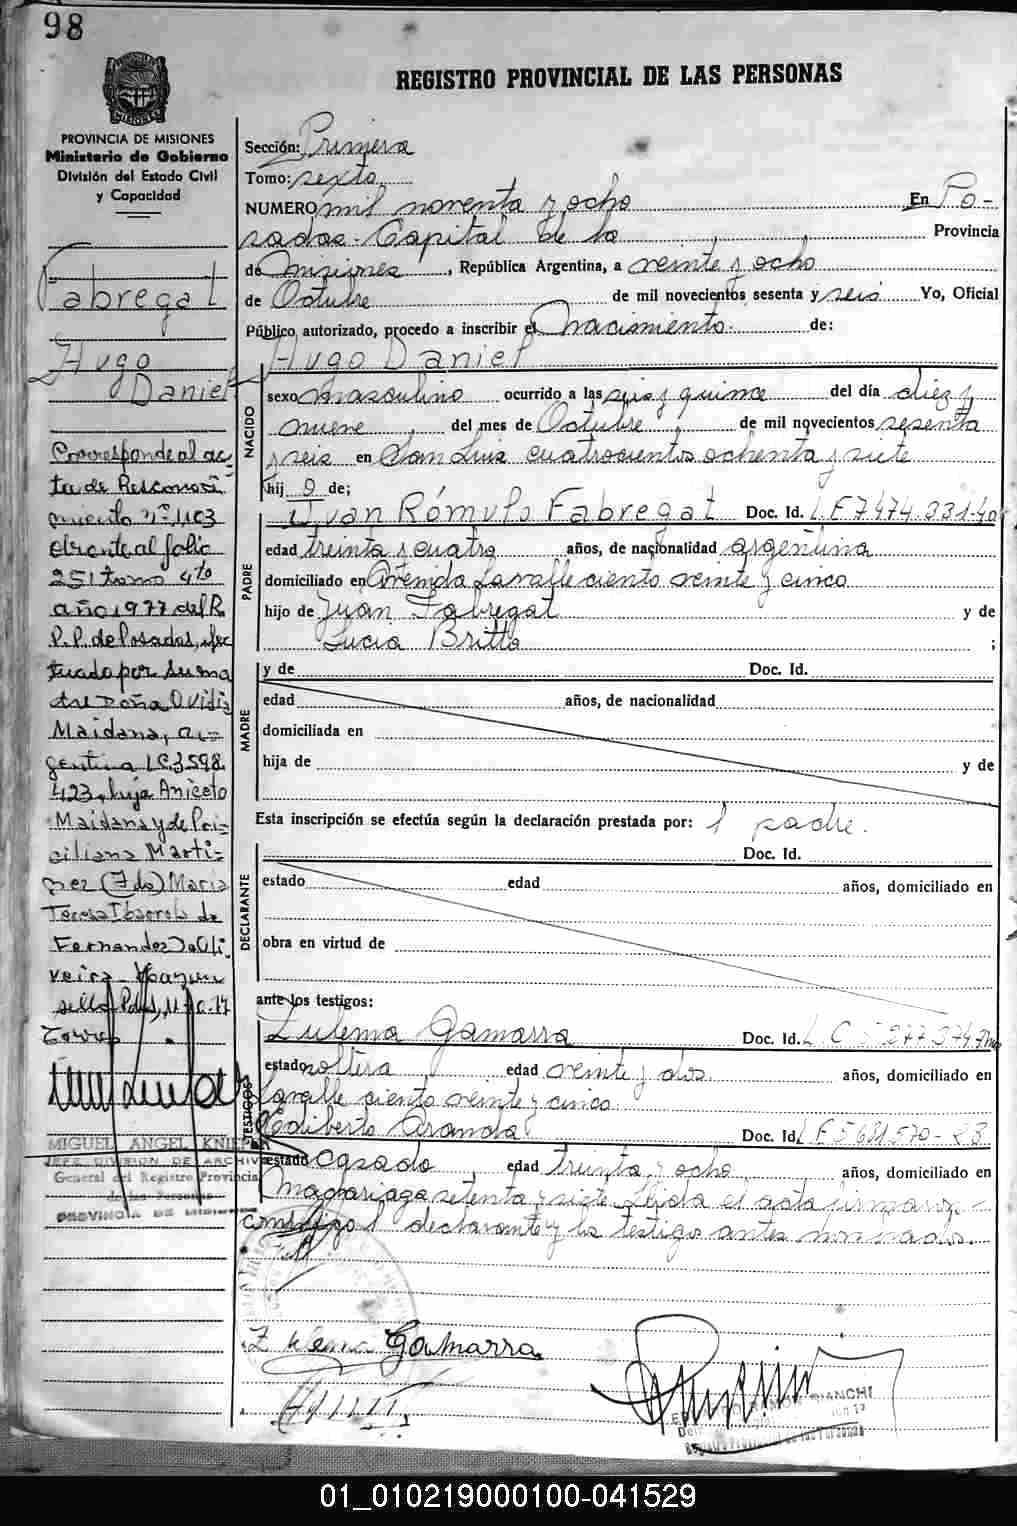 98
REGISTRO PROVINCIAL DE LAS PERSONAS
PROVINCIA DE MISIONES
Ministerio de Gobierno
División del Estado Civil
y Capacidad
Fabregat
Hugo
Daniel
Corresponde al ac-
ta de Reconoci
miento nº 1103
obrante al folio
251 tomo 4to
año 1977 del R.
P.P. de Posadas, efec
tuado por su ma
dre Doña Ovidia
Maidana, ar-
gentina LC.3598.
423, hija Aniceto
Maidana y de Pri-
ciliana Marti-
nez (Fdo) Maria
Teresa Ibarrola de
Fernandez D Oli-
veira
sello Pdas, 11
MIGUEL ANGEL KNIEPER
JEFE DIVISION DE ARCHIVO
General del Registro Provincial
de las Personas
PROVINCIA DE MISIONES
Sección: Primera
Tomo: sexto
NUMERO mil noventa y ocho En Po-
sadas-Capital de la Provincia
de Misiones, República Argentina, a veinte y ocho
de Octubre de mil novecientos sesenta y seis Yo, Oficial
Público autorizado, procedo a inscribir el Nacimiento. de:
Hugo Daniel
NACIDO
sexo masculino ocurrido a las seis y quince del día diez y
nueve del mes de Octubre de mil novecientos sesenta
y seis en San Luis cuatrocientos ochenta y siete
hij o de;
PADRE
Juan Rómulo Fabregat Doc. Id. L E 7.474.331-40
edad treinta y cuatro años, de nacionalidad argentina
domiciliado en Avenida Lavalle ciento veinte y cinco
hijo de Juan Fabregat y de
Lucia Britto ;
MADRE
y de Doc. Id.
edad años, de nacionalidad
domiciliada en
hija de y de
Esta inscripción se efectúa según la declaración prestada por: l padre.
DECLARANTE
Doc. Id.
estado edad años, domiciliado en
obra en virtud de
ante los testigos:
TESTIGOS
Zulema Gamarra Doc. Id. L C 5.277.374
estado soltera edad veinte y dos años, domiciliado en
Lavalle ciento veinte y cinco
Edilberto Aranda Doc. Id. L E 5681570-28
estado casado, edad treinta y ocho años, domiciliado en
setenta y siete. Leída el acta firmaron
conmigo l declarante y los testigos antes nombrados.
Zulema Gamarra
BIANCHI
Registro Provincial de las Personas
01_010219000100-041529